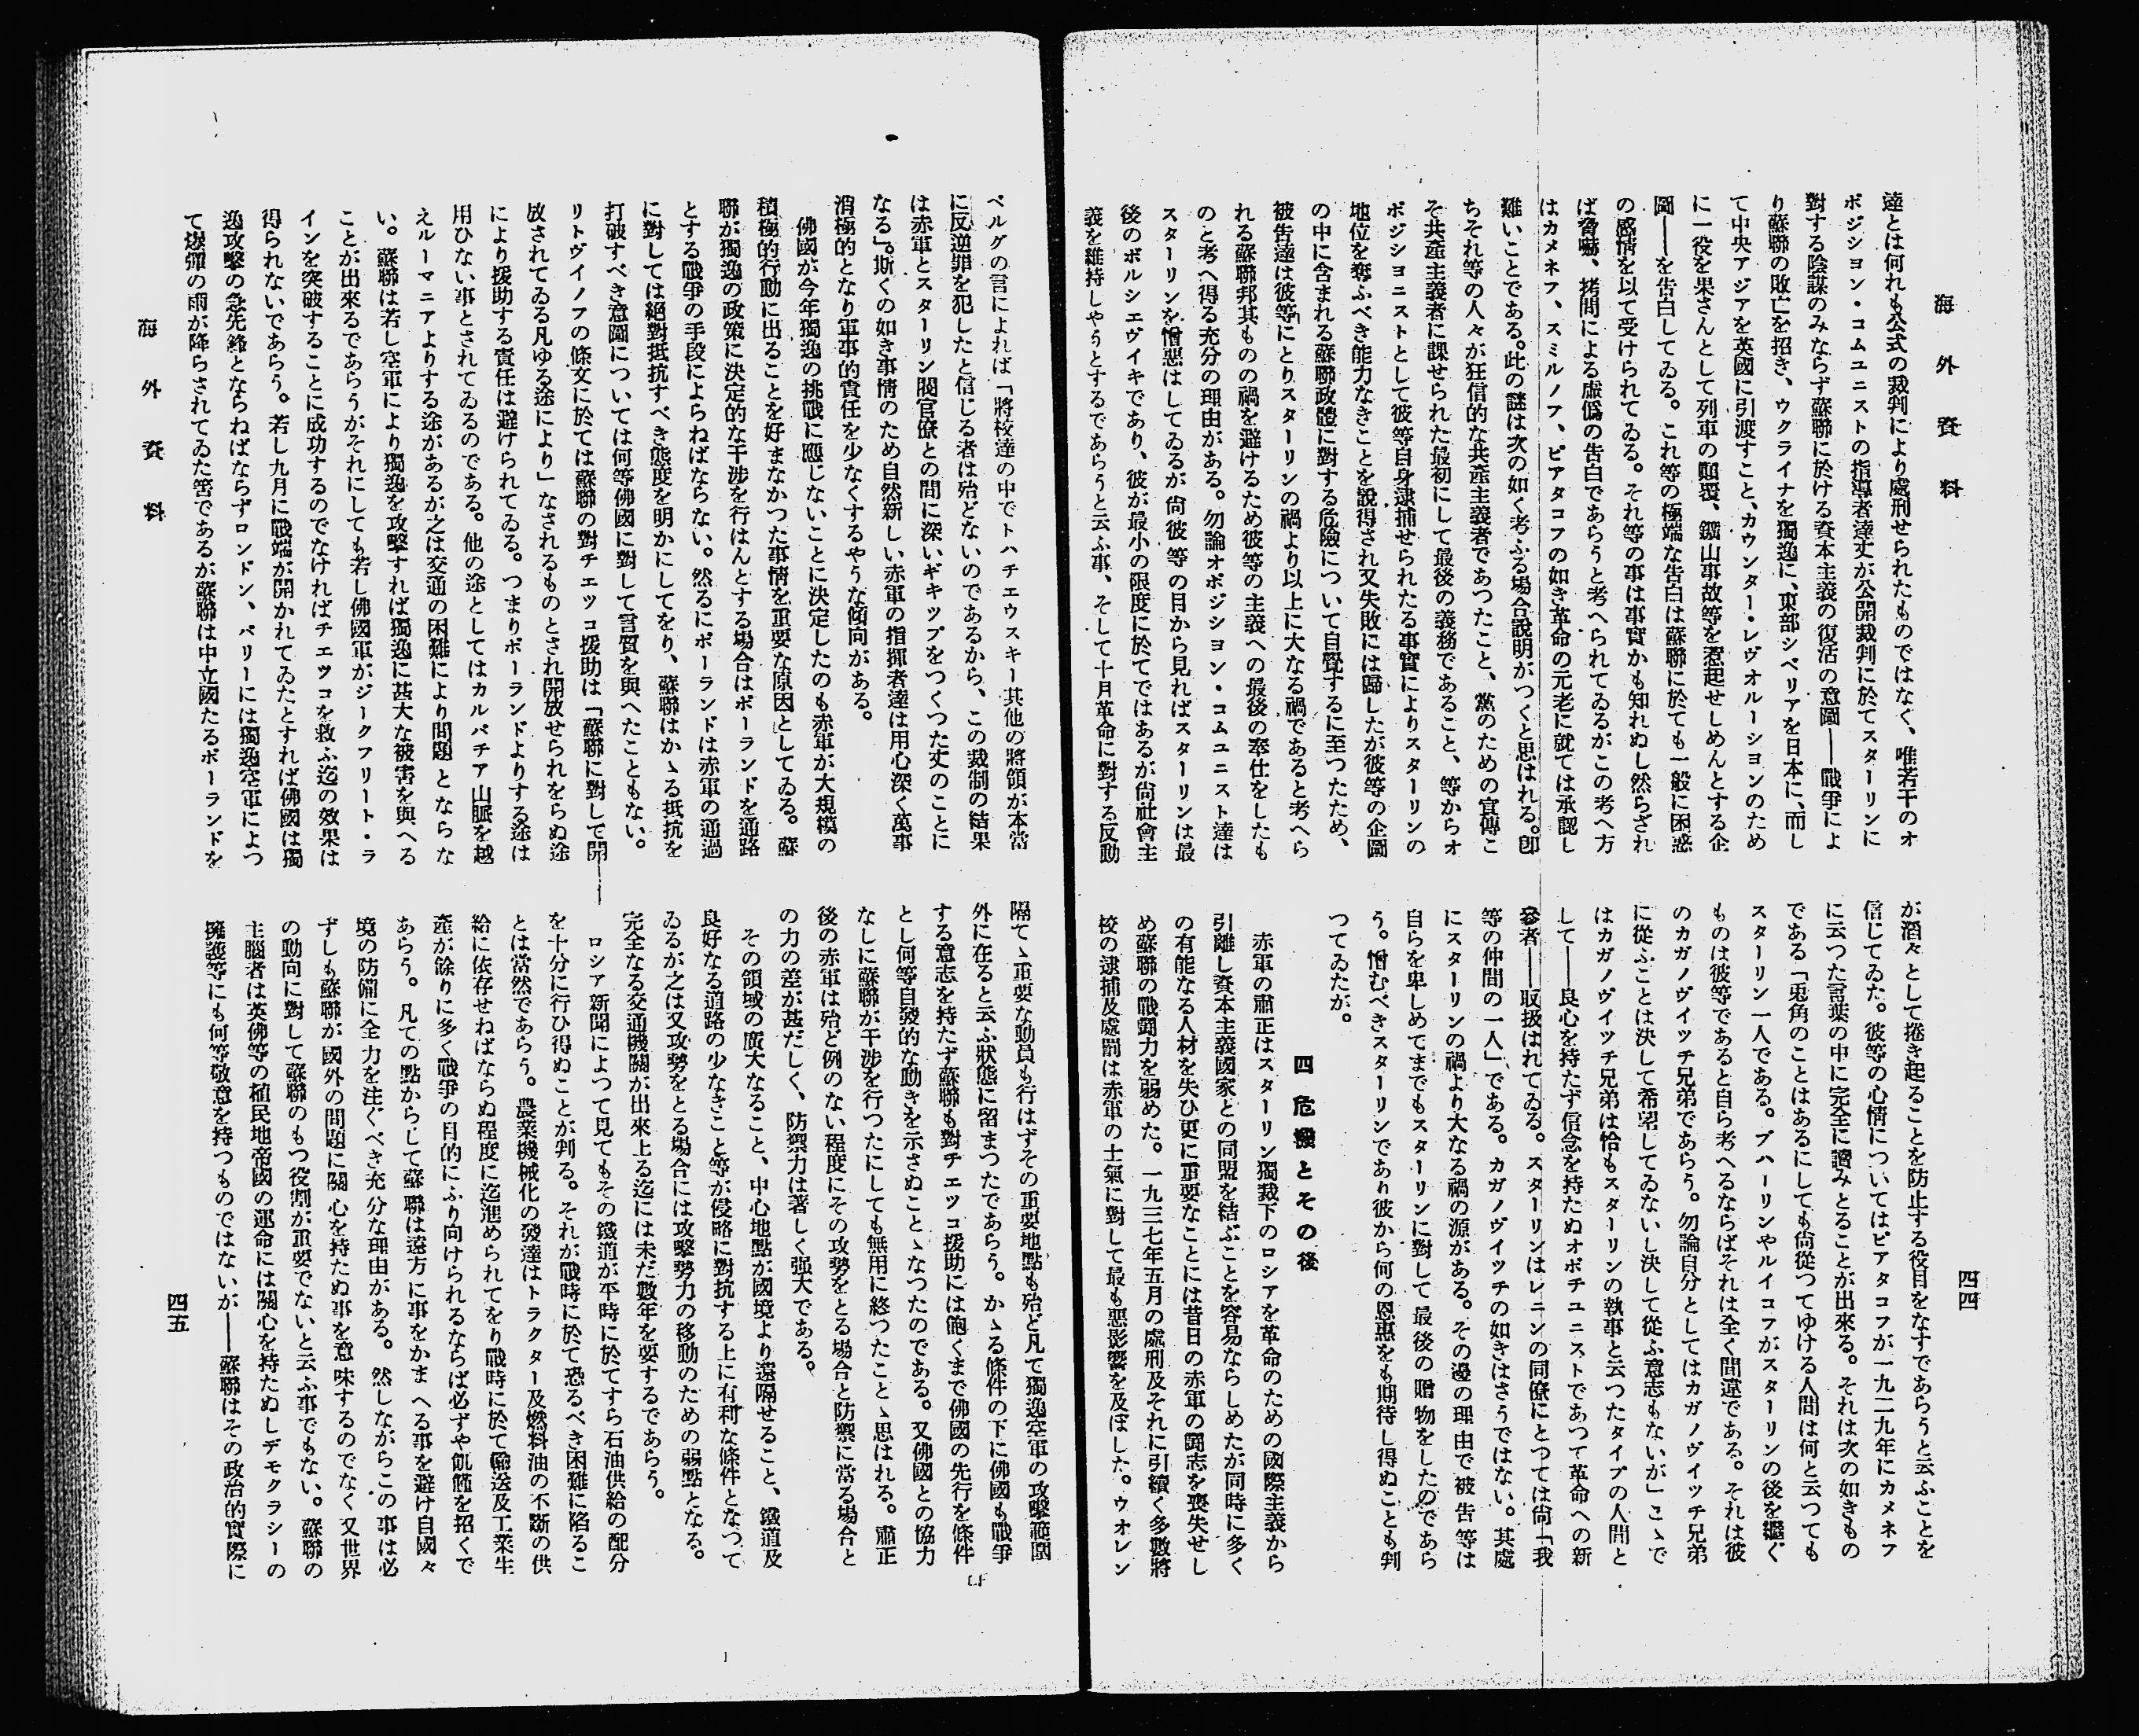 海外資料
四四
達とは何れも公式の裁判により處刑せられたものではなく、唯若干のオ
ポジシヨン・コムユニストの指導者達丈が公開裁判に於てスターリンに
對する陰謀のみならず蘇聯に於ける資本主義の復活の意圖——戰爭によ
り蘇聯の敗亡を招き、ウクライナを獨逸に、東部シベリアを日本に、而し
て中央アジアを英國に引渡すこと、カウンター・レヴオルーシヨンのため
に一役を果さんとして列車の顚覆、鑛山事故等を惹起せしめんとする企
圖——を告白してゐる。これ等の極端な告白は蘇聯に於ても一般に困惑
の感情を以て受けられてゐる。それ等の事は事實かも知れぬし然らざれ
ば脅嚇、拷問による虛僞の告白であらうと考へられてゐるがこの考へ方
はカメネフ、スミルノフ、ピアタコフの如き革命の元老に就ては承認し
難いことである。此の謎は次の如く考ふる場合說明がつくと思はれる。卽
ちそれ等の人々が狂信的な共產主義者であつたこと、黨のための宣傳こ
そ共產主義者に課せられた最初にして最後の義務であること、等からオ
ポジシヨニストとして彼等自身逮捕せられたる事實によりスターリンの
地位を奪ふべき能力なきことを說得され又失敗には歸したが彼等の企圖
の中に含まれる蘇聯政體に對する危險について自覺するに至つたため、
被告達は彼等にとりスターリンの禍より以上に大なる禍であると考へら
れる蘇聯邦其ものの禍を避けるため彼等の主義への最後の奉仕をしたも
のと考へ得る充分の理由がある。勿論オポジシヨン・コムユニスト達は
スターリンを憎惡はしてゐるが尙彼等の目から見ればスターリンは最
後のボルシエヴイキであり、彼が最小の限度に於てではあるが尙社會主
義を維持しやうとするであらうと云ふ事、そして十月革命に對する反動
が滔々として捲き起ることを防止する役目をなすであらうと云ふことを
信じてゐた。彼等の心情についてはピアタコフが一九二九年にカメネフ
に云つた言葉の中に完全に讀みとることが出來る。それは次の如きもの
である「兎角のことはあるにしても尙從つてゆける人間は何と云つても
スターリン一人である。ブハーリンやルイコフがスターリンの後を繼ぐ
ものは彼等であると自ら考へるならばそれは全く間違である。それは彼
のカガノヴイツチ兄弟であらう。勿論自分としてはカガノヴイツチ兄弟
に從ふことは決して希望してゐないし決して從ふ意志もないが」こゝで
はカガノヴイツチ兄弟は恰もスターリンの執事と云つたタイプの人間と
して——良心を持たず信念を持たぬオポチユニストであつて革命への新
參者——取扱はれてゐる。スターリンはレニンの同僚にとつては尙「我
等の仲間の一人」である。カガノヴイツチの如きはさうではない。其處
にスターリンの禍より大なる禍の源がある。その邊の理由で被告等は
自らを卑しめてまでもスターリンに對して最後の贈物をしたのであら
う。憎むべきスターリンであり彼から何の恩惠をも期待し得ぬことも判
つてゐたが。
四 危機とその後
赤軍の肅正はスターリン獨裁下のロシアを革命のための國際主義から
引離し資本主義國家との同盟を結ぶことを容易ならしめたが同時に多く
の有能なる人材を失ひ更に重要なことには昔日の赤軍の鬪志を喪失せし
め蘇聯の戰鬪力を弱めた。一九三七年五月の處刑及それに引續く多數將
校の逮捕及處罰は赤軍の士氣に對して最も惡影響を及ぼした。ウオレン
海外資料
四五
ベルグの言によれば「將校達の中でトハチエウスキー其他の將領が本當
に反逆罪を犯したと信じる者は殆どないのであるから、この裁制の結果
は赤軍とスターリン閥官僚との間に深いギヤツプをつくつた丈のことに
なる」。斯くの如き事情のため自然新しい赤軍の指揮者達は用心深く萬事
消極的となり軍事的責任を少なくするやうな傾向がある。
佛國が今年獨逸の挑戰に應じないことに決定したのも赤軍が大規模の
積極的行動に出ることを好まなかつた事情を重要な原因としてゐる。蘇
聯が獨逸の政策に決定的な干涉を行はんとする場合はポーランドを通路
とする戰爭の手段によらねばならない。然るにポーランドは赤軍の通過
に對しては絕對抵抗すべき態度を明かにしてをり、蘇聯はかゝる抵抗を
打破すべき意圖については何等佛國に對して言質を與へたこともない。
リトヴイノフの條文に於ては蘇聯の對チエツコ援助は「蘇聯に對して開
放されてゐる凡ゆる途により」なされるものとされ開放せられをらぬ途
により援助する責任は避けられてゐる。つまりポーランドよりする途は
用ひない事とされてゐるのである。他の途としてはカルパチア山脈を越
えルーマニアよりする途があるが之は交通の困難により問題とならな
い。蘇聯は若し空軍により獨逸を攻擊すれば獨逸に甚大な被害を與へる
ことが出來るであらうがそれにしても若し佛國軍がジークフリート・ラ
インを突破することに成功するのでなければチエツコを救ふ迄の效果は
得られないであらう。若し九月に戰端が開かれてゐたとすれば佛國は獨
逸攻擊の急先鋒とならねばならずロンドン、パリーには獨逸空軍によつ
て爆彈の雨が降らされてゐた筈であるが蘇聯は中立國たるポーランドを
隔てゝ重要な動員も行はずその重要地點も殆ど凡て獨逸空軍の攻擊範圍
外に在ると云ふ狀態に留まつたであらう。かゝる條件の下に佛國も戰爭
する意志を持たず蘇聯も對チエツコ援助には飽くまで佛國の先行を條件
とし何等自發的な動きを示さぬことゝなつたのである。又佛國との協力
なしに蘇聯が干涉を行つたにしても無用に終つたことゝ思はれる。肅正
後の赤軍は殆ど例のない程度にその攻勢をとる場合と防禦に當る場合と
の力の差が甚だしく、防禦力は著しく强大である。
その領域の廣大なること、中心地點が國境より遠隔せること、鐵道及
良好なる道路の少なきこと等が侵略に對抗する上に有利な條件となつて
ゐるが之は又攻勢をとる場合には攻擊勢力の移動のための弱點となる。
完全なる交通機關が出來上る迄には未だ數年を要するであらう。
ロシア新聞によつて見てもその鐵道が平時に於てすら石油供給の配分
を十分に行ひ得ぬことが判る。それが戰時に於て恐るべき困難に陷るこ
とは當然であらう。農業機械化の發達はトラクター及燃料油の不斷の供
給に依存せねばならぬ程度に迄進められてをり戰時に於て輸送及工業生
產が餘りに多く戰爭の目的にふり向けられるならば必ずや飢饉を招くで
あらう。凡ての點からして蘇聯は遠方に事をかまへる事を避け自國々
境の防備に全力を注ぐべき充分な理由がある。然しながらこの事は必
ずしも蘇聯が國外の問題に關心を持たぬ事を意味するのでなく又世界
の動向に對して蘇聯のもつ役割が重要でないと云ふ事でもない。蘇聯の
主腦者は英佛等の植民地帝國の運命には關心を持たぬしデモクラシーの
擁護等にも何等敬意を持つものではないが——蘇聯はその政治的實際に